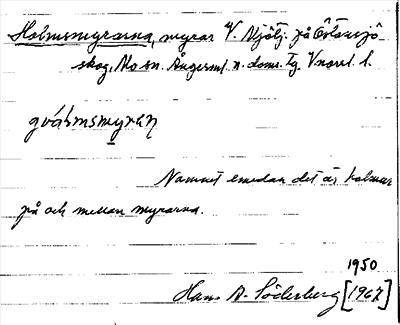 Holmsmyrarna, myrar V. Mjötj. på Östansjö-
skog, Mo sn. Ångerml. n. doms. Tg. Vnorrl. l.
gvåhmsmyran
Namnet emedan det är holmar
på och mellan myrarna.
1950
Hans A. Söderberg [1967]